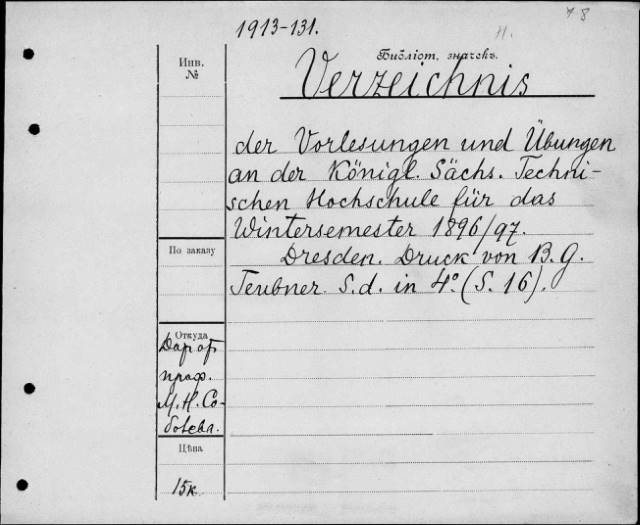 78
1913-131.
H.
Библіот. значекъ.
Verzeichnis
der Vorlesungen und Übungen
an der Königl. Sächs. Techni-
schen Hochschule für das
Wintersemester 1896/97.
Dresden. Druck von B. G.
Teubner. S.d. in 4°. (S. 16).
Инв.
№
По заказу
Откуда
Дар от
проф.
М. Н. Со-
болева.
Цѣна
15к.